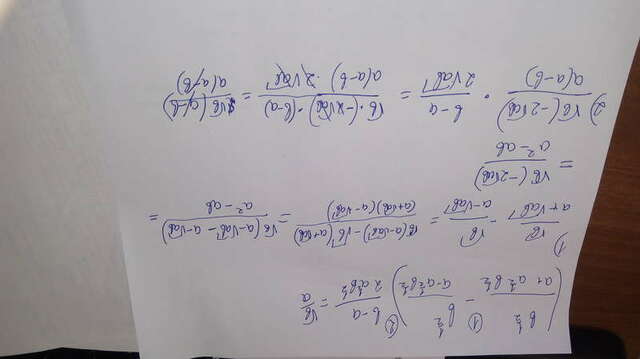 (b^{1/2}/(a + a^{1/2} b^{1/2}) - b^{1/2}/(a - a^{1/2} b^{1/2})) · (b-a)/(2a^{1/2}b^{1/2}) = √b/a
1) √b/(a+√ab) - √b/(a-√ab) = (√b(a-√ab) - √b(a+√ab))/((a+√ab)(a-√ab)) = √b(a-√ab - a-√ab)/(a²-ab) =
= √b(-2√ab)/(a²-ab)
2) √b(-2√ab)/(a(a-b)) · (b-a)/(2√ab) = (√b·(-2√ab)·(b-a))/(a(a-b)·2√ab) = √b(a-b)/(a(a-b))